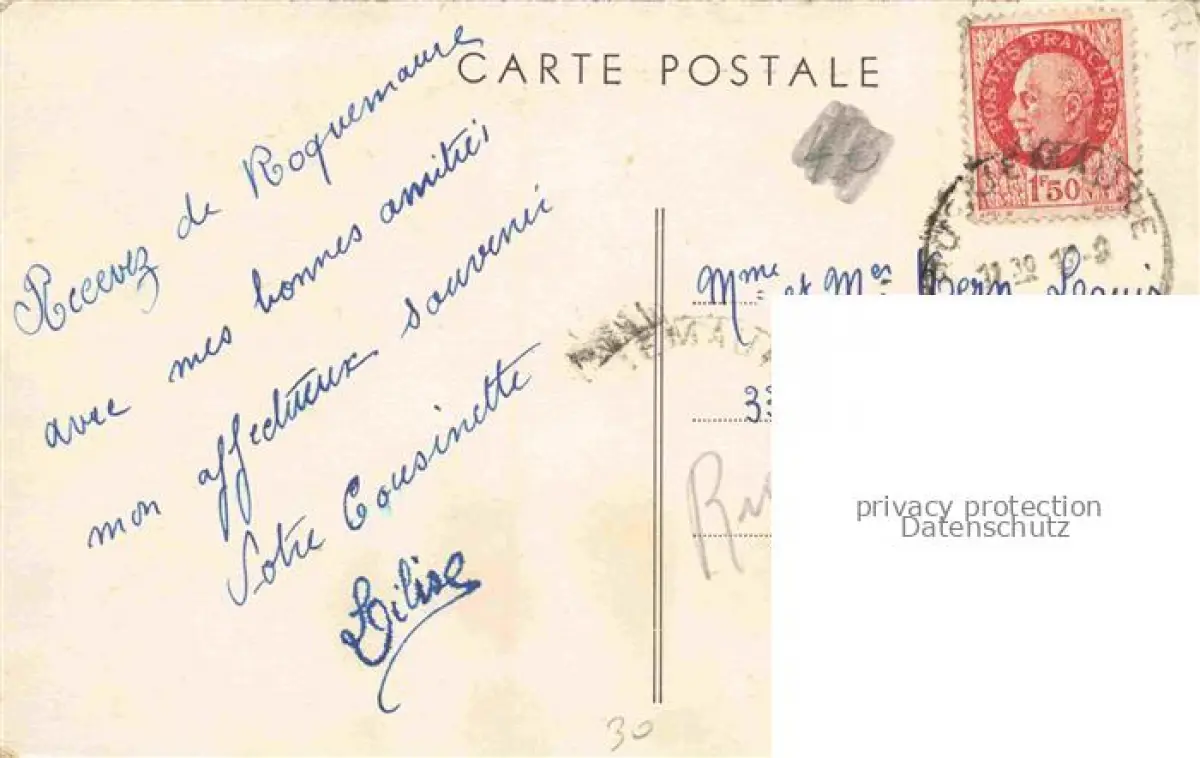 CARTE POSTALE
POSTES FRANÇAISES
1F50
Recevez de Roquemaure
avec mes bonnes amitiés
mon affectueux souvenir
Votre Cousinette
Lilise
ROQUEMAURE
Mme et Mr
33
privacy protection
Datenschutz
30